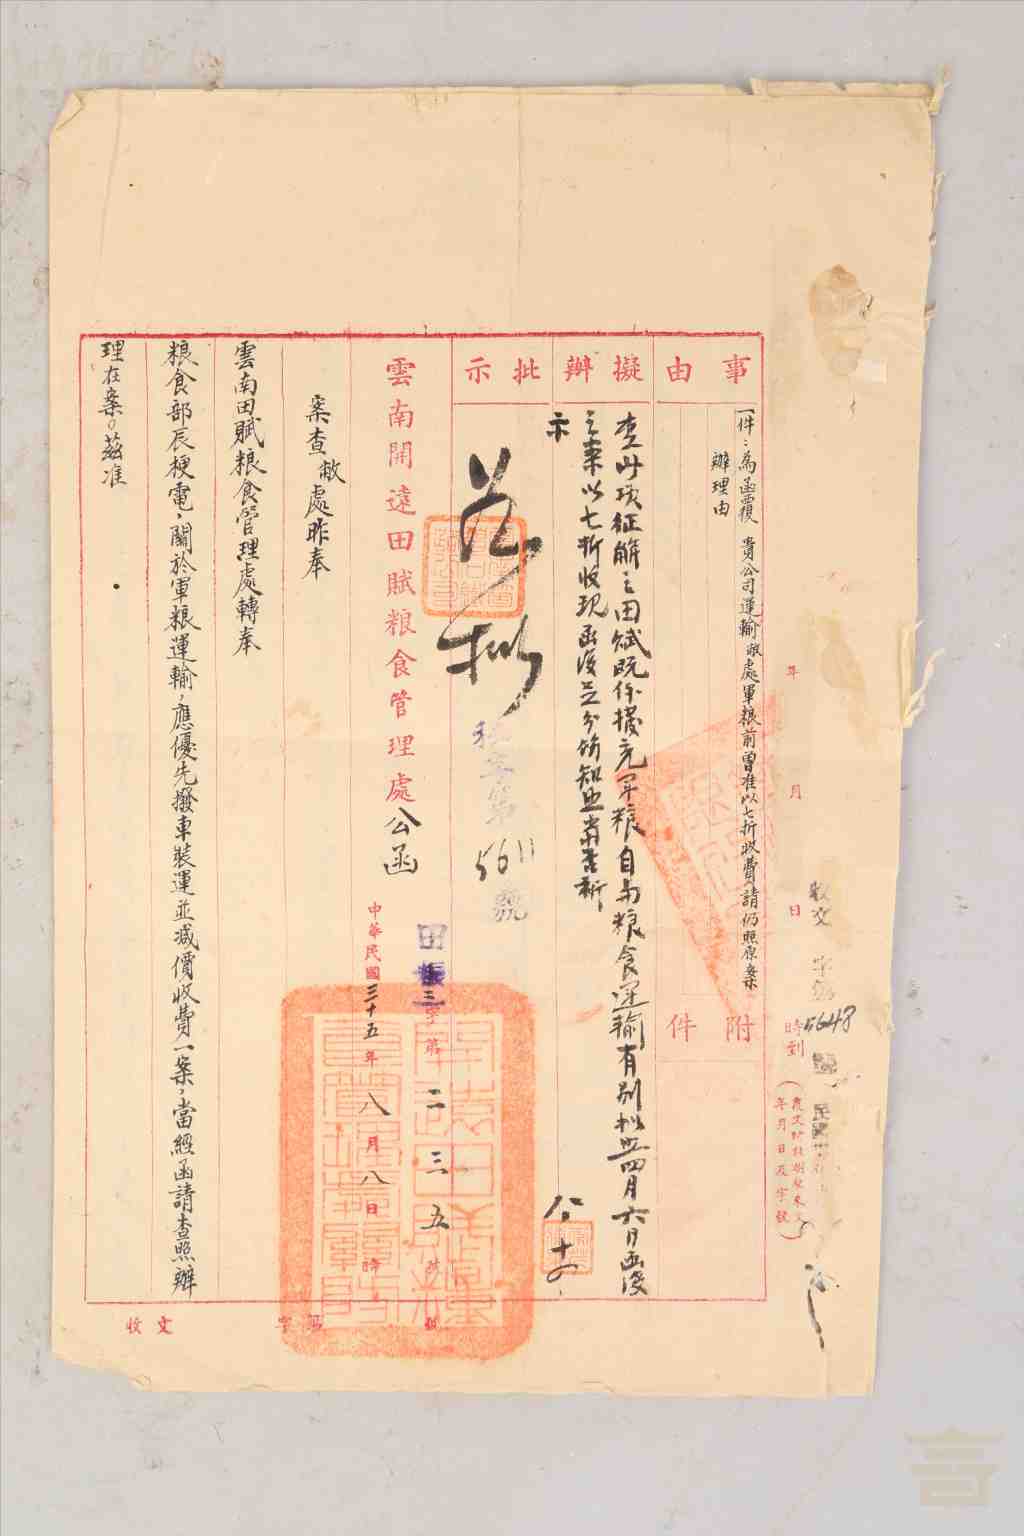 收文 字第 5648
年 月 日 時到
事由
一件：為函覆 貴公司運輸敝處軍粮前曾准以七折收費請仍照原案
辦理由
附件
擬辦
查此項征解之田賦既係撥充軍粮自與粮食運輸有別拟照四月六日函復
之案以七折收現函復並分飭知照當否祈
示
八、十四
批示
如拟
5611 號
雲南開遠田賦粮食管理處公函
田 三字第二三五號
中華民國三十五年八月八日 時
案查敝處昨奉
雲南田賦粮食管理處轉奉
粮食部辰梗電，關於軍粮運輸，應優先撥車裝運並減價收費一案，當經函請查照辦
理在案。茲准
收文 字第 號